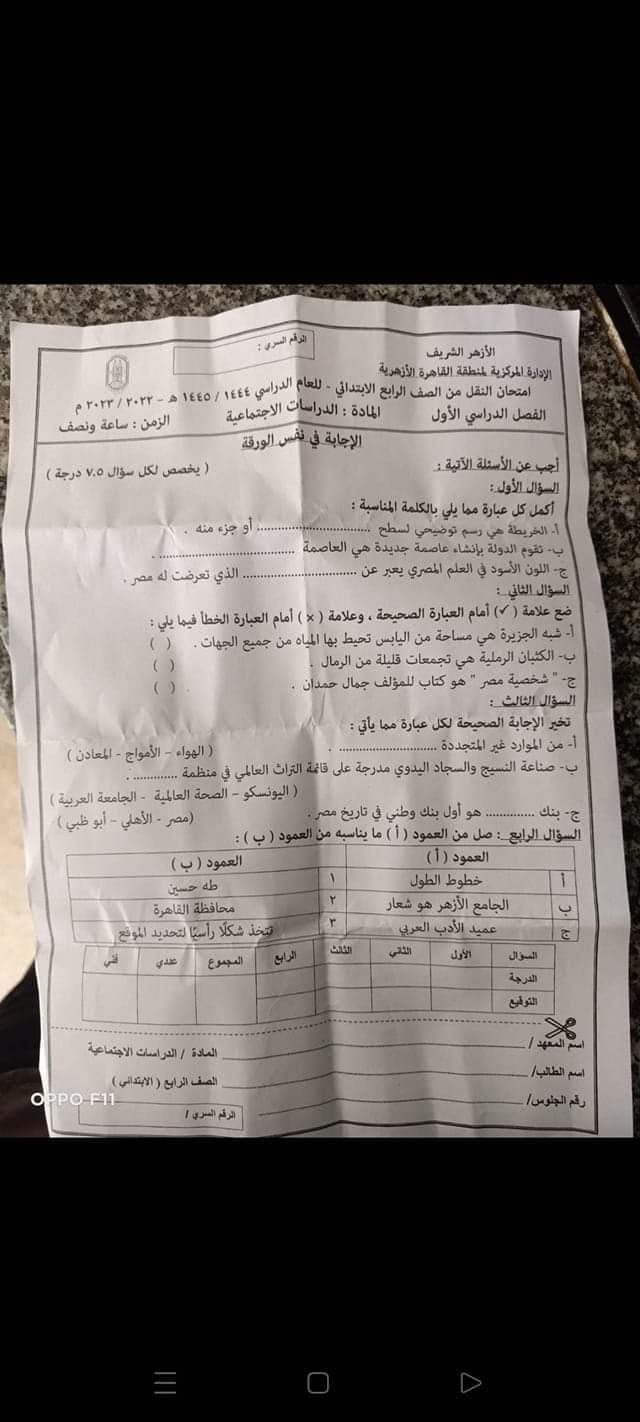 الأزهر الشريف
الرقم السري :
الإدارة المركزية لمنطقة القاهرة الأزهرية
امتحان النقل من الصف الرابع الابتدائي - للعام الدراسي ١٤٤٤ / ١٤٤٥ هـ - ٢٠٢٢ / ٢٠٢٣ م
الفصل الدراسي الأول المادة : الدراسات الاجتماعية الزمن : ساعة ونصف
الإجابة في نفس الورقة
أجب عن الأسئلة الآتية : ( يخصص لكل سؤال ٧.٥ درجة )
السؤال الأول :
أكمل كل عبارة مما يلي بالكلمة المناسبة :
أ- الخريطة هي رسم توضيحي لسطح .............................. أو جزء منه .
ب- تقوم الدولة بإنشاء عاصمة جديدة هي العاصمة .............................. .
ج- اللون الأسود في العلم المصري يعبر عن .............................. الذي تعرضت له مصر .
السؤال الثاني :
ضع علامة ( ✓ ) أمام العبارة الصحيحة ، وعلامة ( × ) أمام العبارة الخطأ فيما يلي :
أ- شبه الجزيرة هي مساحة من اليابس تحيط بها المياه من جميع الجهات . ( )
ب- الكثبان الرملية هي تجمعات قليلة من الرمال . ( )
ج- " شخصية مصر " هو كتاب للمؤلف جمال حمدان . ( )
السؤال الثالث :
تخير الإجابة الصحيحة لكل عبارة مما يأتي :
أ- من الموارد غير المتجددة ........................ . ( الهواء – الأمواج - المعادن )
ب- صناعة النسيج والسجاد اليدوي مدرجة على قائمة التراث العالمي في منظمة ............. .
( اليونسكو – الصحة العالمية - الجامعة العربية )
ج- بنك .............. هو أول بنك وطني في تاريخ مصر . (مصر - الأهلي – أبو ظبي )
السؤال الرابع : صل من العمود ( أ ) ما يناسبه من العمود ( ب ) :
العمود ( أ ) العمود ( ب )
أ خطوط الطول ١ طه حسين
ب الجامع الأزهر هو شعار ٢ محافظة القاهرة
ج عميد الأدب العربي ٣ تتخذ شكلًا رأسيًا لتحديد الموقع
السؤال الأول الثاني الثالث الرابع المجموع عددي فني
الدرجة
التوقيع
اسم المعهد / المادة / الدراسات الاجتماعية
اسم الطالب/ الصف الرابع ( الابتدائي )
رقم الجلوس/ الرقم السري /
OPPO F11